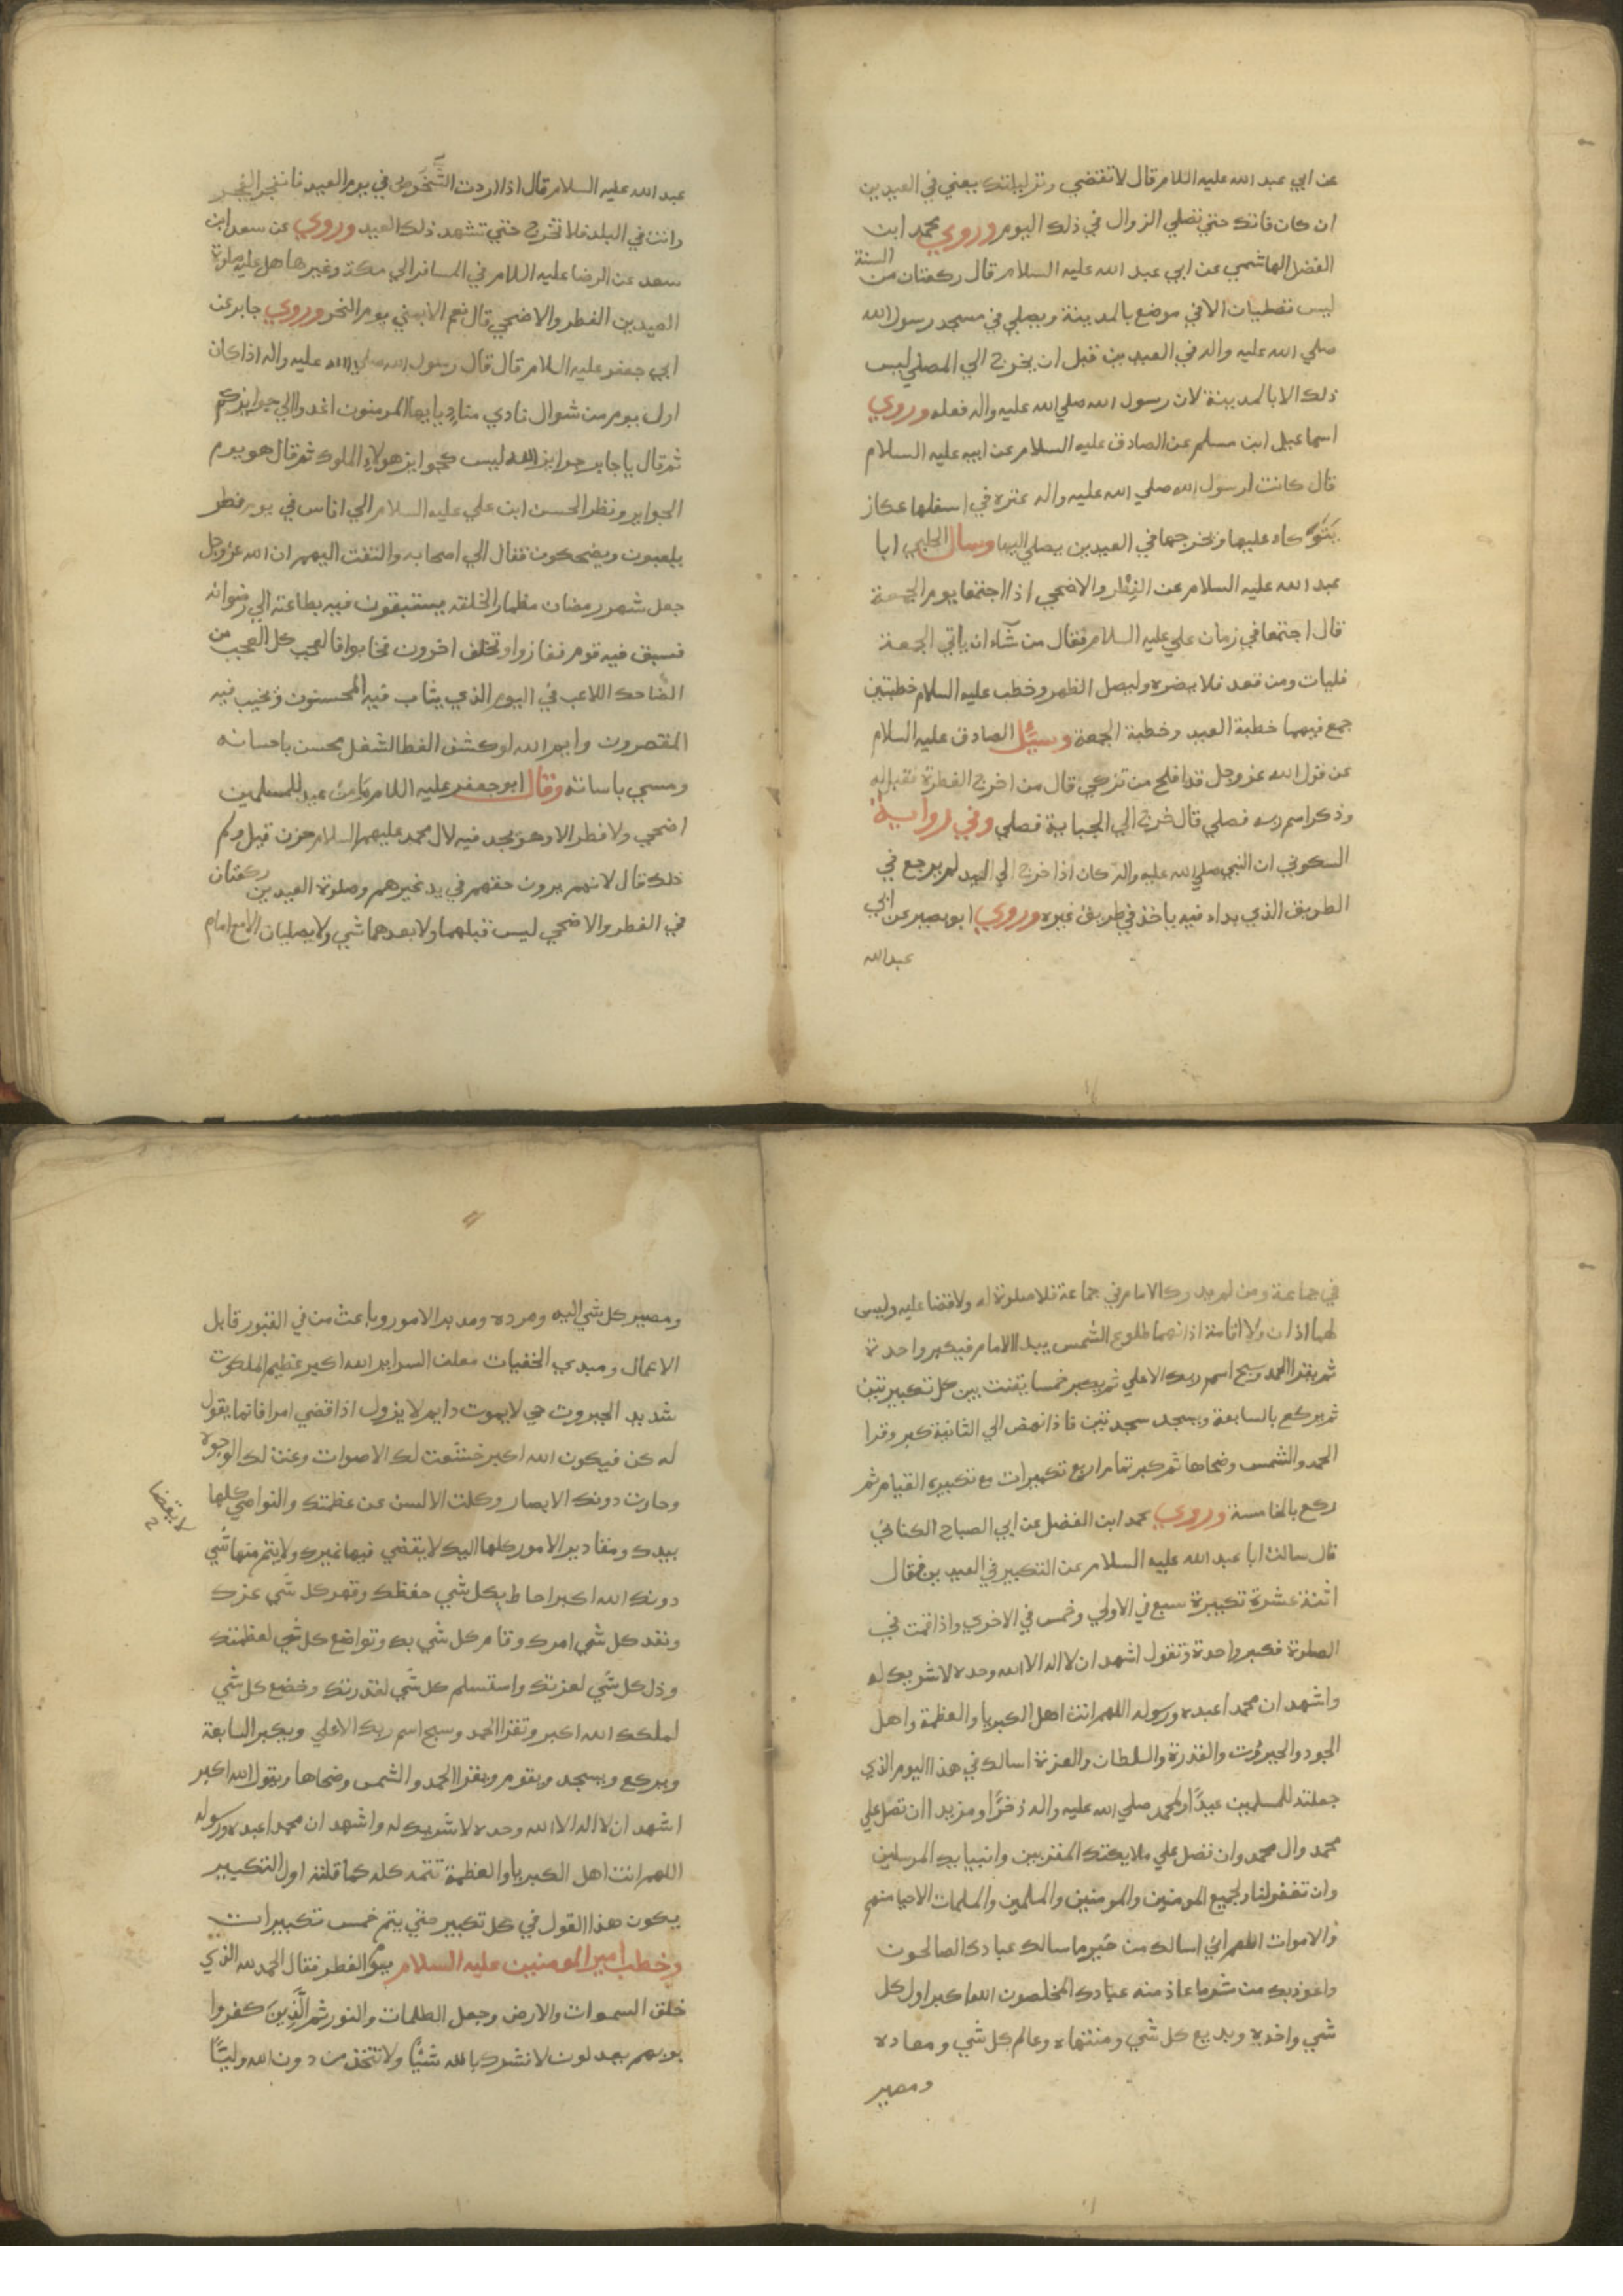 عن ابي عبد الله عليه السلام قال لا تقضي وتر ليلتك يعني في العيدين
ان كان فاتك حتي تصلي الزوال في ذلك اليوم وروي محمد ابن
الفضل الهاشمي عن ابي عبد الله عليه السلام قال ركعتان من السنة
ليس تصليان الا في موضع بالمدينة ويصلي في مسجد رسول الله
صلي الله عليه واله في العيدين قبل ان يخرج الي المصلي ليس
ذلك الا بالمدينة لان رسول الله صلي الله عليه واله فعله وروي
اسماعيل ابن مسلم عن الصادق عليه السلام عن ابيه عليه السلام
قال كانت لرسول الله صلي الله عليه واله عنزه في اسفلها عكاز
يتوكاء عليها ويخرجها في العيدين يصلي اليها وسال الحلبي ابا
عبد الله عليه السلام عن الفطر والاضحي اذا اجتمعا يوم الجمعة
قال اجتمعا في زمان علي عليه السلام فقال من شآء ان ياتي الجمعة
فليات ومن قعد فلا يضره وليصل الظهر وخطب عليه السلام خطبتين
جمع فيهما خطبة العيد وخطبة الجمعة وسئل الصادق عليه السلام
عن قول الله عز وجل قد افلح من تزكي قال من اخرج الفطرة فقيل له
وذكر اسم ربه فصلي قال خرج الي الجبابة فصلي وفي رواية
السكوني ان النبي صلي الله عليه واله كان اذا خرج الي العيد لم يرجع في
الطريق الذي بداء فيه ياخذ في طريق غيره وروي ابو بصير عن ابي
عبد الله
عبد الله عليه السلام قال اذا اردت الشخوص في يوم العيد فانفجر الفجر
وانت في البلد فلا تخرج حتي تشهد ذلك العيد وروي عن سعد ابن
سعد عن الرضا عليه السلام في المسافر الي مكة وغيرها هل عليه صلوة
العيدين الفطر والاضحي قال نعم الا بمني يوم النحر وروي جابر عن
ابي جعفر عليه السلام قال قال رسول الله صلي الله عليه واله اذا كان
اول يوم من شوال نادي مناد يا ايها المومنون اغدوا الي جوايزكم
ثم قال يا جابر جوايز الله ليس كجوايز هولاء الملوك ثم قال هو يوم
الجوايز ونظر الحسن ابن علي عليه السلام الي اناس في يوم فطر
يلعبون ويضحكون فقال الي اصحابه والتفت اليهم ان الله عز وجل
جعل شهر رمضان مظمار الخلقه يستبقون فيه بطاعته الي رضوانه
فسبق فيه قوم ففازوا وتخلف اخرون فخابوا فالعجب كل العجب من
الضاحك اللاعب في اليوم الذي يثاب فيه المحسنون ويخيب فيه
المقصرون وايم الله لو كشف الغطا لشغل محسن باحسانه
ومسي باسائة وقال ابو جعفر عليه السلام ما من عيد للمسلمين
اضحي ولا فطر الا وهو يجدد فيه لال محمد عليهم السلام حزن قيل ولم
ذلك قال لانهم يرون حقهم في يد غيرهم وصلوة العيدين ركعتان
في الفطر والاضحي ليس قبلهما ولا بعدهما شي ولا يصليان الا مع امام
في جماعة ومن لم يدرك الامام في جماعة فلا صلوة له ولا قضا عليه وليس
لهما اذان ولا اقامة اذانهما طلوع الشمس يبدا الامام فيكبر واحدة
ثم يقرا الحمد وسبح اسم ربك الاعلي ثم يكبر خمسا يقنت بين كل تكبيرتين
ثم يركع بالسابعة ويسجد سجدتين فاذا نهض الي الثانية كبر وقرا
الحمد والشمس وضحاها ثم كبر تمام اربع تكبيرات مع تكبيرة القيام ثم
ركع بالخامسة وروي محمد ابن الفضل عن ابي الصباح الكناني
قال سالت ابا عبد الله عليه السلام عن التكبير في العيدين فقال
اثنة عشرة تكبيرة سبع في الاولي وخمس في الاخري واذا قمت في
الصلوة فكبر واحدة وتقول اشهد ان لا اله الا الله وحده لا شريك له
واشهد ان محمدا عبده ورسوله اللهم انت اهل الكبريا والعظمة واهل
الجود والجبروت والقدرة والسلطان والعزة اسالك في هذا اليوم الذي
جعلته للمسلمين عيدًا ولمحمد صلي الله عليه واله ذخرًا ومزيدا ان تصل علي
محمد وال محمد وان تصل علي ملايكتك المقربين وانبيايك المرسلين
وان تغفر لنا ولجميع المومنين والمومنين والمسلمين والمسلمات الاحيا منهم
والاموات اللهم اني اسالك من خير ما سالك عبادك الصالحون
واعوذ بك من شر ما عاذ منه عبادك المخلصون الله اكبر اول كل
شي واخره وبديع كل شي ومنتهاه وعالم كل شي ومعاده
ومصير
ومصير كل شي اليه ومرده ومدبر الامور وباعث من في القبور قابل
الاعمال ومبدي الخفيات معلن السراير الله اكبر عظيم الملكوت
شديد الجبروت حي لا يموت دايم لا يزول اذا قضي امرا فانما يقول
له كن فيكون الله اكبر خشعت لك الاصوات وعنت لك الوجوه
وحارت دونك الابصار وكلت الالسن عن عظمتك والنواصي كلها
بيدك ومقادير الامور كلها اليك لا يقضي فيها غيرك ولا يتم منها شي
دونك الله اكبر احاط بكل شي حفظك وقهر كل شي عزك
ونفد كل شي امرك وقام كل شي بك وتواضع كل شي لعظمتك
وذل كل شي لعزتك واستسلم كل شي لقدرتك وخضع كل شي
لملكك الله اكبر وتقرا الحمد وسبح اسم ربك الاعلي ويكبر السابعة
ويركع ويسجد ويقوم ويقرا الحمد والشمس وضحاها ويقول الله اكبر
اشهد ان لا اله الا الله وحده لا شريك له واشهد ان محمدا عبده ورسوله
اللهم انت اهل الكبريا والعظمة تتمه كله كما قلته اول التكبير
يكون هذا القول في كل تكبير حتي يتم خمس تكبيرات
وخطب امير المومنين عليه السلام يوم الفطر فقال الحمد لله الذي
خلق السموات والارض وجعل الظلمات والنور ثم الَّذِينَ كفروا
بربهم يعدلون لا نشرك بالله شيئًا ولا نتخذ من دون الله وليًّا